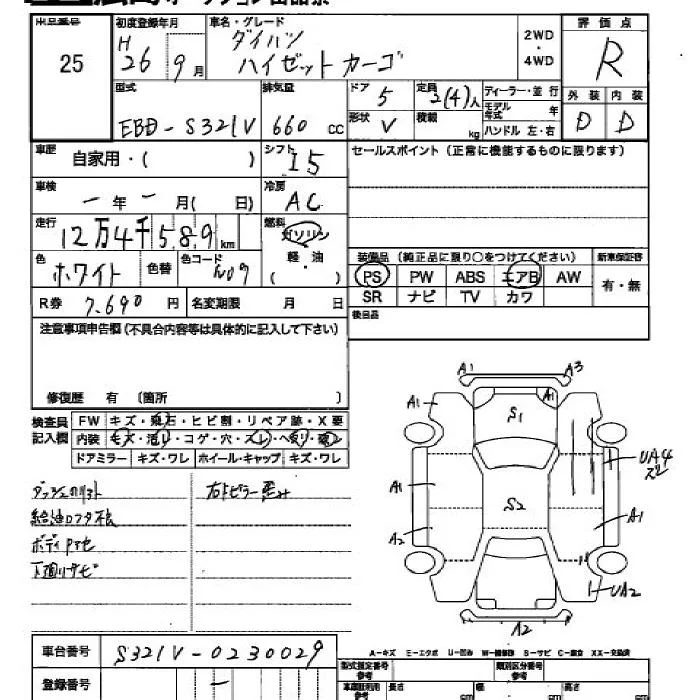 出品番号 初度登録年月 車名・グレード 評価点
25 H 26 9月 ダイハツ ハイゼットカーゴ 2WD・4WD R
型式 排気量 ドア 定員 ディーラー・並行 外装 内装
EBD-S321V 660 cc 5 2(4)人 モデル年式 年 D D
形状 V 積載 kg ハンドル 左・右
車歴 自家用・( ) シフト I5 セールスポイント (正常に機能するものに限ります)
車検 一年一月( 日) 冷房 AC
走行 12万4千589km 燃料 ガソリン 軽・油 ( )
装備品 (純正品に限り○をつけてください) 新車保証書
色 ホワイト 色替 色コード W09 PS PW ABS エアB AW 有・無
R券 7,690円 名変期限 月 日 SR ナビ TV カワ
後日品
注意事項申告欄(不具合内容等は具体的に記入して下さい)
修復歴 有 〔箇所 〕
検査員記入欄 FW キズ・飛石・ヒビ割・リペア跡・X要
内装 キズ・汚レ・コゲ・穴・スレ・ヘタリ・
ドアミラー キズ・ワレ ホイール・キャップ キズ・ワレ
右Bピラー歪み
ボディ
下廻りサビ
A1 A3
A1 A1
S1
UA4
A1 S2 A1
A2
UA2
A2
車台番号 S321V-0230029
A-キズ E-エクボ U-凹み W-補修跡 S-サビ C-腐食 XX-交換済
登録番号 一 型式指定番号 参考 類別区分番号 参考
長さ cm 幅 cm 高さ cm